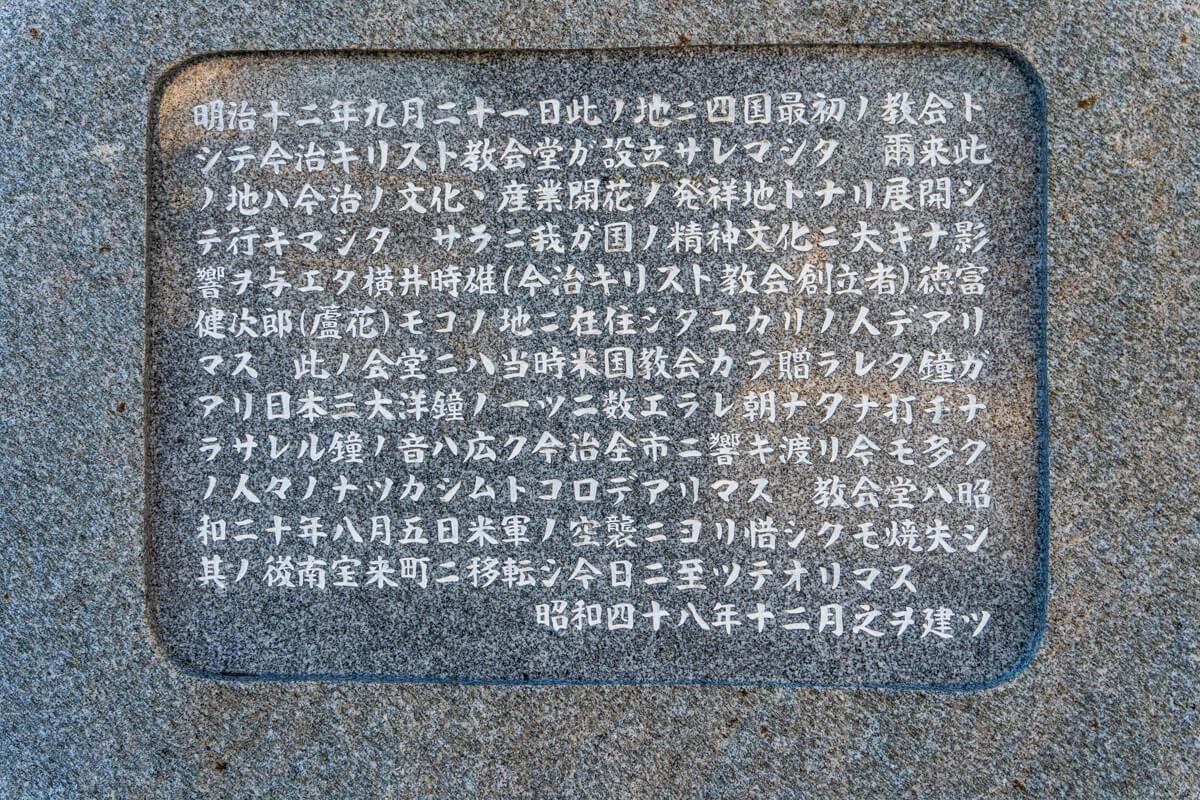 明治十二年九月二十一日此ノ地ニ四国最初ノ教会ト
シテ今治キリスト教会堂ガ設立サレマシタ　爾来此
ノ地ハ今治ノ文化、産業開花ノ発祥地トナリ展開シ
テ行キマシタ　サラニ我ガ国ノ精神文化ニ大キナ影
響ヲ与エタ横井時雄(今治キリスト教会創立者)徳富
健次郎(蘆花)モコノ地ニ在住シタユカリノ人デアリ
マス　此ノ会堂ニハ当時米国教会カラ贈ラレタ鐘ガ
アリ日本三大洋鐘ノ一ツニ数エラレ朝ナタナ打チナ
ラサレル鐘ノ音ハ広ク今治全市ニ響キ渡リ今モ多ク
ノ人々ノナツカシムトコロデアリマス　教会堂ハ昭
和二十年八月五日米軍ノ空襲ニヨリ惜シクモ焼失シ
其ノ後南宝来町ニ移転シ今日ニ至ツテオリマス
昭和四十八年十二月之ヲ建ツ